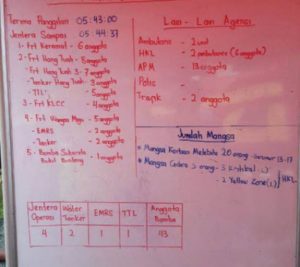 Terima Panggilan 05:43:00
Jentera Sampai 05:44:37
1 - Frt Keramat - 6 anggota
2 - Frt Hang Tuah - 5 anggota
Frt Hang Tuah 3 - 7 anggota
Tanker Hang Tuah - 3 anggota
TTL - 5 anggota
3 - Frt KLCC - 4 anggota
4 - Frt - 5 anggota
EMRS - 2 anggota
Tanker - 2 anggota
5 - Bomba Sukarela
Bukit Bintang - 1 anggota
Lain - Lain Agensi
Ambulans - 2 unit
HKL - 2 ambulans (6 anggota)
APM - 13 anggota
Polis -
Trafik - 2 anggota
Jumlah Mangsa
* Mangsa Korban Melibat 20 orang - berumur 13-17
* Mangsa Cedera 5 orang - 3 kritikal
- 2 Yellow Zone HKL
Jentera Operasi Water Tanker EMRS TTL Anggota Bomba
4 2 1 1 43